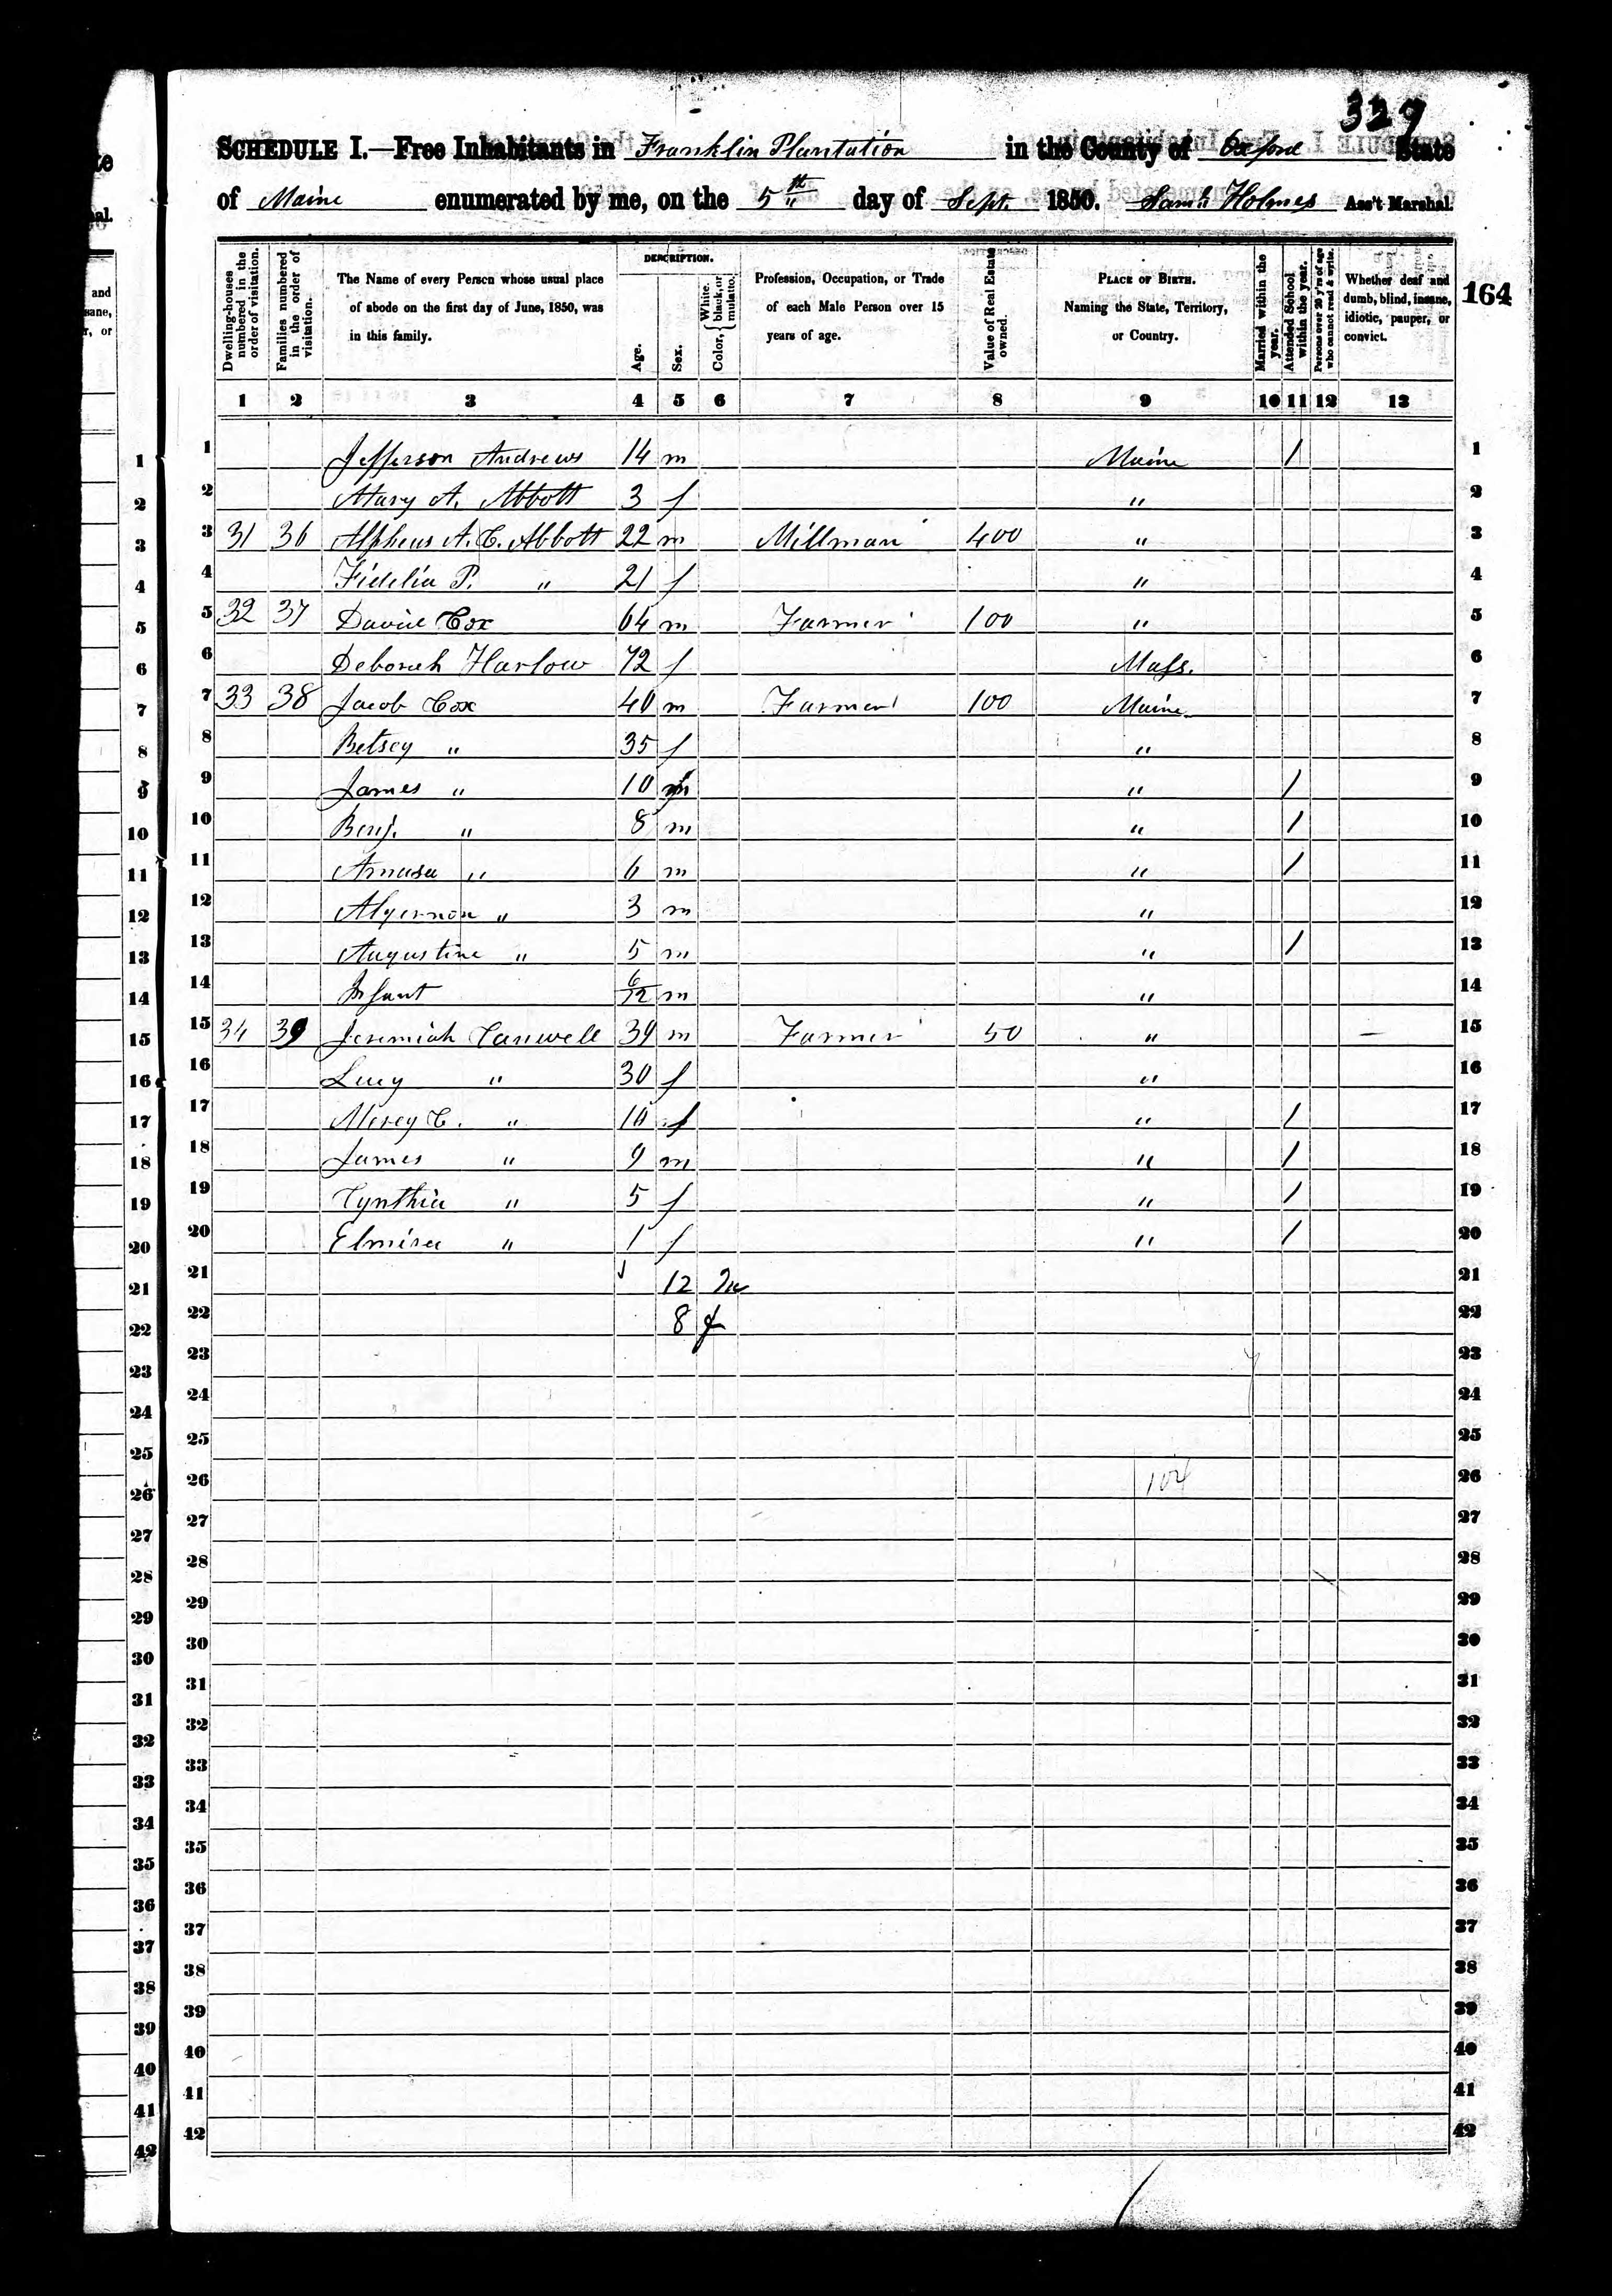 327
SCHEDULE I.—Free Inhabitants in Franklin Plantation in the County of Oxford State
of Maine enumerated by me, on the 5th day of Sept. 1850. Saml. Holmes Ass't Marshal.
164
Dwelling-houses numbered in the order of visitation.
Families numbered in the order of visitation.
The Name of every Person whose usual place of abode on the first day of June, 1850, was in this family.
DESCRIPTION.
Age.
Sex.
Color, { White, black, or mulatto.
Profession, Occupation, or Trade of each Male Person over 15 years of age.
Value of Real Estate owned.
PLACE OF BIRTH. Naming the State, Territory, or Country.
Married within the year.
Attended School within the year.
Persons over 20 y'rs of age who cannot read & write.
Whether deaf and dumb, blind, insane, idiotic, pauper, or convict.
1 2 3 4 5 6 7 8 9 10 11 12 13
1 Jefferson Andrews 14 m Maine / 1
2 Mary A. Abbott 3 f " 2
3 31 36 Alpheus A. C. Abbott 22 m Millman 400 " 3
4 Fidelia P. " 21 f " 4
5 32 37 David Cox 64 m Farmer 100 " 5
6 Deborah Harlow 72 f Mass. 6
7 33 38 Jacob Cox 40 m Farmer 100 Maine 7
8 Betsey " 35 f " 8
9 James " 10 m " / 9
10 Benj. " 8 m " / 10
11 Amasa " 6 m " / 11
12 Algernon " 3 m " 12
13 Augustine " 5 m " / 13
14 Infant 6/12 m " 14
15 34 39 Jeremiah Canwell 39 m Farmer 50 " — 15
16 Lucy " 30 f " 16
17 Mercy C. " 10 f " / 17
18 James " 9 m " / 18
19 Cynthia " 5 f " / 19
20 Elmira " 1 f " / 20
21 12 m 21
22 8 f 22
23 23
24 24
25 25
26 104 26
27 27
28 28
29 29
30 30
31 31
32 32
33 33
34 34
35 35
36 36
37 37
38 38
39 39
40 40
41 41
42 42